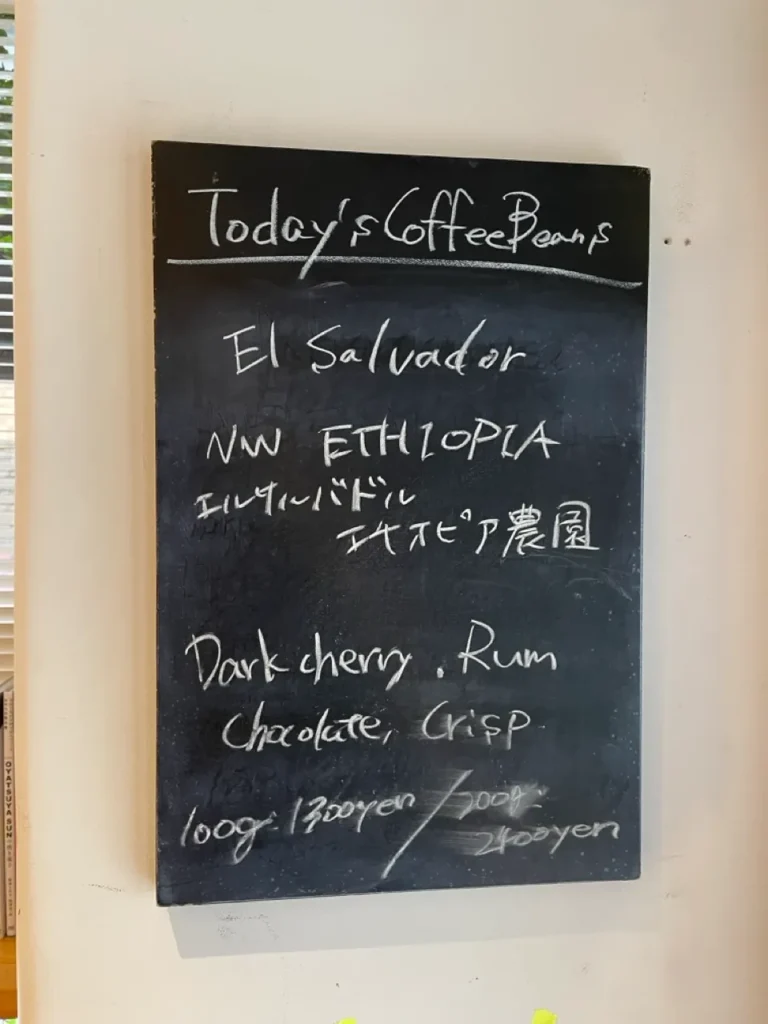 Today's Coffee Beans
El Salvador
NW ETHIOPIA
エルサルバドル
エチオピア農園
Dark cherry. Rum
Chocolate, Crisp
100g. 1300yen / 200g.
2400yen
OYATSUYA SUN